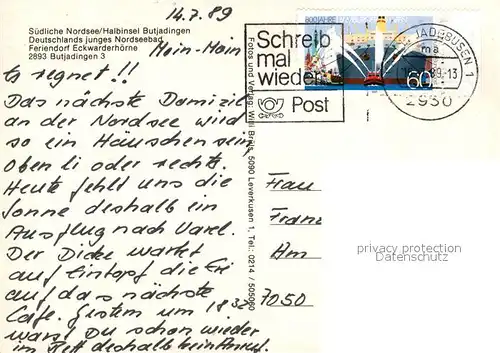 14.7.89
Südliche Nordsee/Halbinsel Butjadingen
Deutschlands junges Nordseebad
Feriendorf Eckwarderhörne
2893 Butjadingen 3
Moin-Moin
Es regnet!!
Das nächste Domizil
an der Nordsee wird
so ein Häuschen sein
oben li oder rechts.
Heute fehlt uns die
Sonne deshalb ein
Ausflug nach Varel.
Der Dicke wartet
auf Eintopf die Evi
auf das nächste
Cafe. Gestern um 18 32
warst Du schon wieder
im Bett deshalb kein Anruf.
Fotos und Verlag Willi Breis, 5090 Leverkusen 1, Tel.: 0214 / 505060
Schreib
mal
wieder
Post
800 JAHRE HAFEN HAMBURG
60
JADEBUSEN 1
ma
89.-13
2930
Frau
Franz
Am
7050
privacy protection
Datenschutz